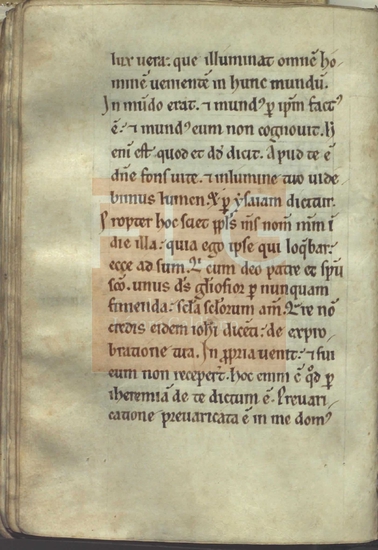 lux vera: que illuminat omnē ho
minē venientē in hunc mundū.
In mūdo erat. ⁊ mundꝰ p̄ ip̄m factꝰ
ē: ⁊ mundꝰ eum non cognovit. H
enī est quod et dd̄ dicit. Apud te ē
dn̄e fons vite. ⁊ in lumine tuo vide
bimus lumen. p̄ ysaiam dicitur.
Propter hoc sciet pplꝰ mꝰs nom̄ mm̄ ī
die illa: quia ego ipse qui loq̄bar:
ecce ad sum. cum deo patre et spū
sc̄o. unus dꝰs gl̄iosior p̄ nunquam
finienda: scl̄a scl̄orum am̄. nō
credis eidem ioh̄i dicēti: de expro
bratione tua. In ꝓpria venit: ⁊ sui
eum non recepert̄. Hoc enim ē qd̄ p̄
iheremiā de te dictum ē. Prevari
catione prevaricata ē in me domꝰ